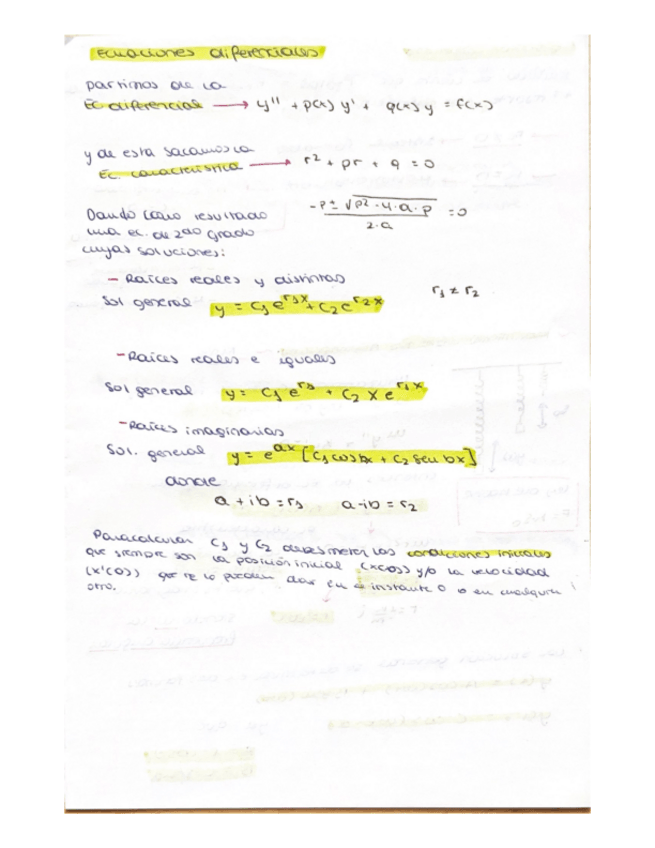 Ecuaciones diferenciales
partimos de la
Ec diferencial → y'' + p(x) y' + q(x) y = f(x)
y de esta sacamos la
Ec. característica → r² + pr + q = 0
Dando como resultado
una ec. de 2do grado
cuyas soluciones:
-p ± √p² - 4·a·p / 2·a = 0
- Raíces reales y distintas
r₁ ≠ r₂
Sol general y = C₁ e^r₁x + C₂ e^r₂x
- Raíces reales e iguales
Sol general y = C₁ e^r₁ + C₂ x e^r₁x
- Raíces imaginarias
Sol. general y = e^ax [C₁ cos bx + C₂ sen bx]
donde
a + ib = r₁ a - ib = r₂
Para calcular C₁ y C₂ debes meter las condiciones iniciales
que siempre son la posición inicial (x(0)) y/o la velocidad
(x'(0)) que te lo pueden dar en el instante 0 o en cualquier
otro.